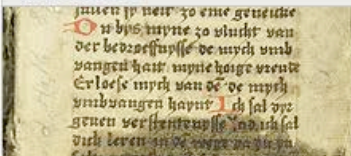 zo eme
Du bys myne zo vlucht van
der bedroeffnysse de mych vmb
vangen hait myne hoige vreude
Erloese mych van dē de mych
vmbvangen haynt Ich sal dyr
geuen verstentenysse vnd ich sal
dich leren in